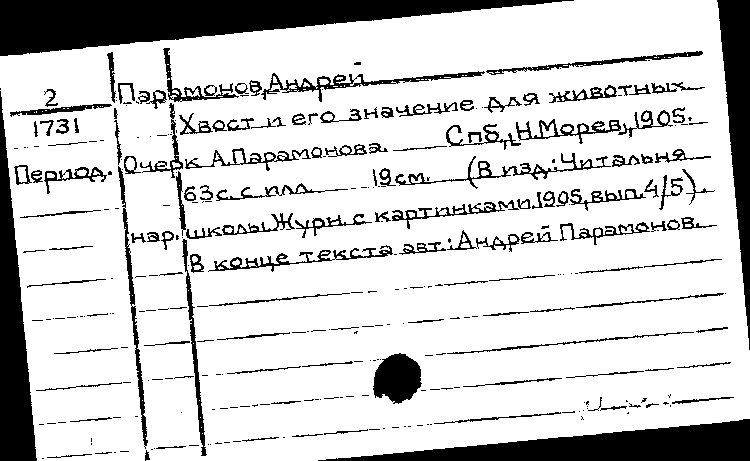 2
1731
Период.
Парамонов, Андрей
Хвост и его значение для животных.
Очерк А.Парамонова. Спб., Н.Морев, 1905.
63с. с илл. 19см. (В изд.: Читальня
нар. школы. Журн. с картинками. 1905, вып. 4/5).
В конце текста авт.: Андрей Парамонов.